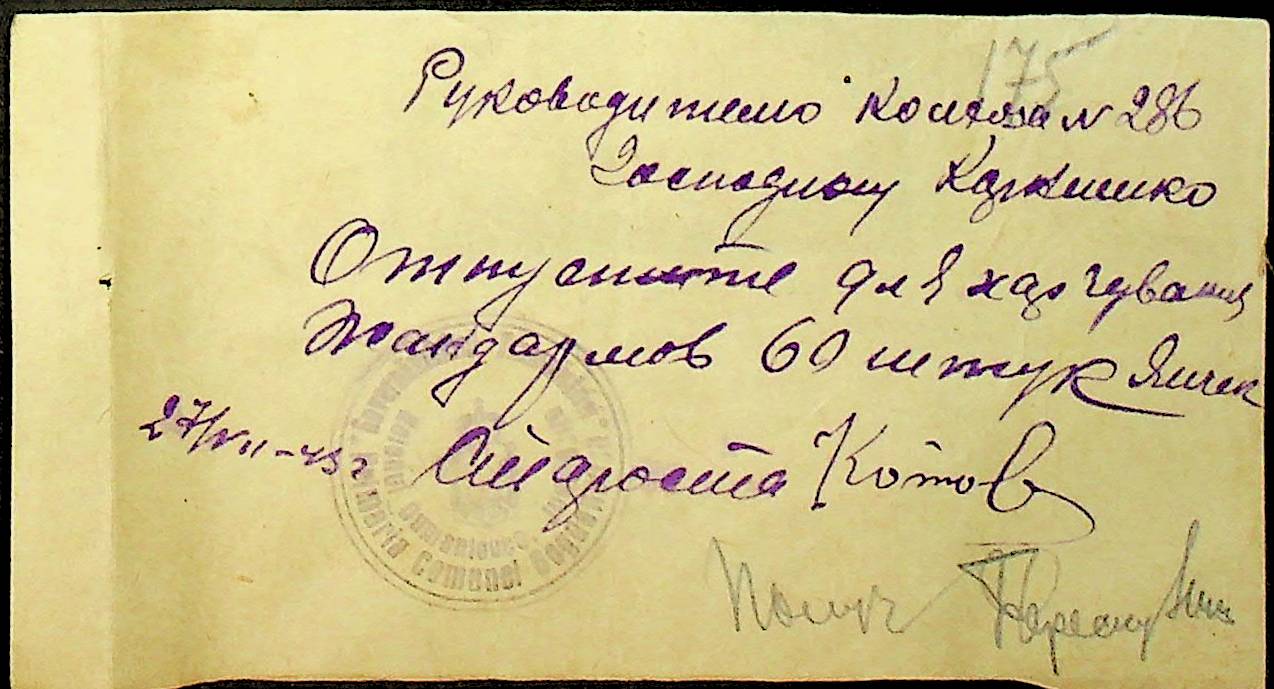 175
Руководителю колхоза N 286
Господину
Отпустите для харчевания
Жандармов 60 штук Яичек
27/VII-43г Староста Котов
Comunei